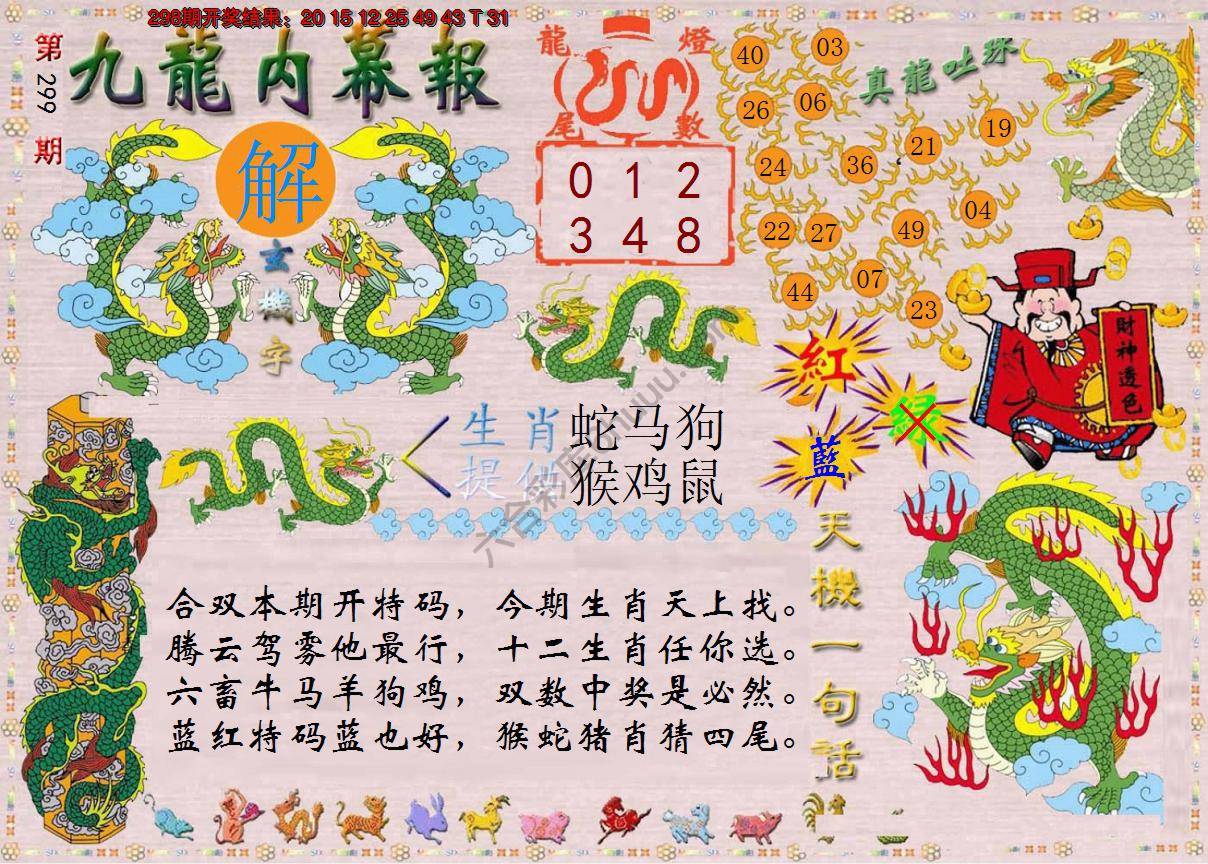 298期开奖结果：20 15 12 25 49 43 T 31
第299期
九龍内幕報
解
玄機字
龍燈
尾數
0 1 2
3 4 8
真龍吐珠
40
03
26
06
24
36
21
19
22
27
49
04
44
07
23
財神透色
紅
绿
藍
生肖
提供
蛇马狗
猴鸡鼠
天機一句话
合双本期开特码，今期生肖天上找。
腾云驾雾他最行，十二生肖任你选。
六畜牛马羊狗鸡，双数中奖是必然。
蓝红特码蓝也好，猴蛇猪肖猜四尾。